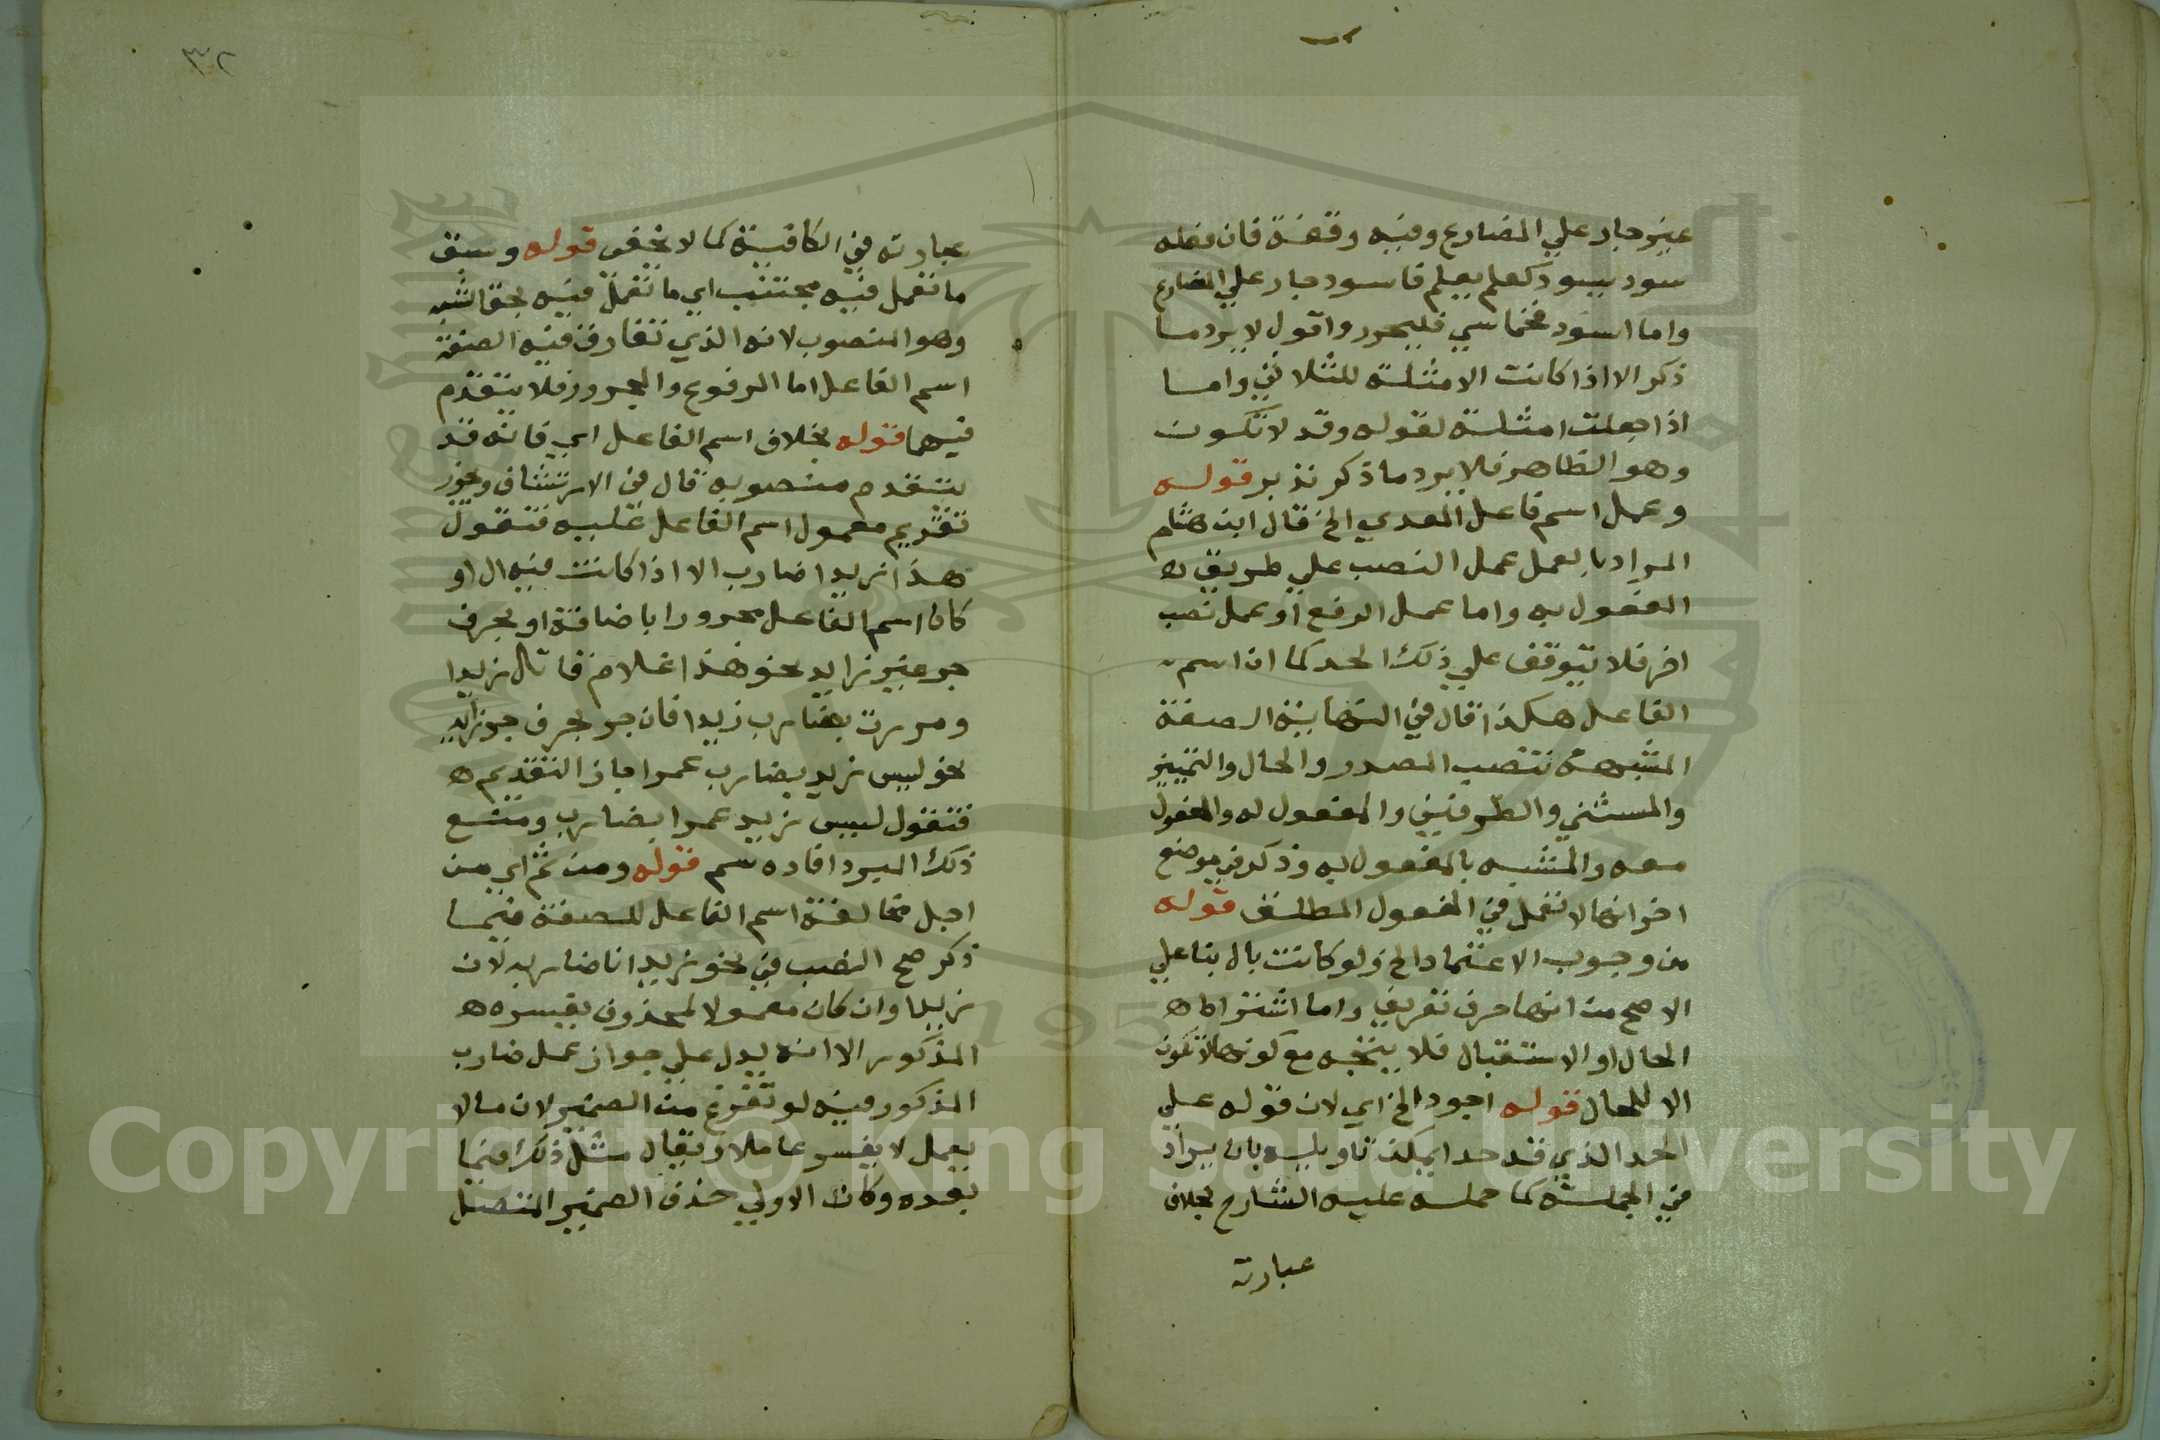 غير جار علي المضارع وفيه وقفة فان فعله
سود يسود كعلم يعلم فاسود جار علي المضارع
واما اسود فخماسي فليحرر واقول لا يرد ما
ذكر الا اذا كانت الامثلة للثلاثي واما
اذا جعلت امثلة لقوله وقد لا تكون
وهو الظاهر فلا يرد ما ذكر تدبر قوله
وعمل اسم فاعل المعدي الخ قال ابن هشام
المراد بالعمل عمل النصب علي طريقة
المفعول به واما عمل الرفع او عمل نصب
اخر فلا يتوقف علي ذلك الحد كما ان اسم
الفاعل هكذا قال في النهاية الصفة
المشبهة تنصب المصدر والحال والتمييز
والمستثني والظرفين والمفعول له والمفعول
معه والمشبه بالمفعول به وذكر في موضع
اخر انها لا تعمل في المفعول المطلق قوله
من وجوب الاعتماد الخ ولو كانت بال بنا علي
الاصح من انها حرف تعريف واما اشتراط
الحال او الاستقبال فلا يتجه مع كونها لا تكون
الا للحال قوله اجود الخ اي لان قوله علي
الحد الذي قد حدا يمكن تاويله بان يراد
في الجملة كما حمله عليه الشارح بخلاف
عبارته
٣٢
عبارته في الكافية كما لا يخفى قوله وسبق
ما تعمل فيه مجتنب اي ما تعمل فيه بحق الشبه
وهو المنصوب لانه الذي تفارق فيه الصفة
اسم الفاعل اما المرفوع والمجرور فلا يتقدم
فيهما قوله بخلاف اسم الفاعل اي فانه قد
يتقدم منصوبه قال في الارتشاف ويجوز
تقديم معمول اسم الفاعل عليه فتقول
هذا زيدا ضارب الا اذا كانت فيه ال او
كان اسم الفاعل مجرورا باضافة او بحرف
جر غير زايد نحو هذا غلام قاتل زيدا
ومررت بضارب زيدا فان جر بحرف جر زايد
نحو ليس زيد بضارب عمرا جاز التقديم
فتقول ليس زيد عمرا بضارب ومنع
ذلك المبرد افاده سم قوله ومن ثم اي من
اجل مخالفة اسم الفاعل للصفة فيما
ذكر صح النصب في نحو زيدا انا ضاربه لان
زيدا وان كان معمولا لمحذوف يفسره
المذكور الا انه يدل علي جواز عمل ضارب
المذكور فيه لو تفرغ من الضمير لان ما لا
يعمل لا يفسر عاملا ويقال مثل ذلك فيما
بعده وكان الاولي حذف الضمير المتصل
Copyright © King Saud University